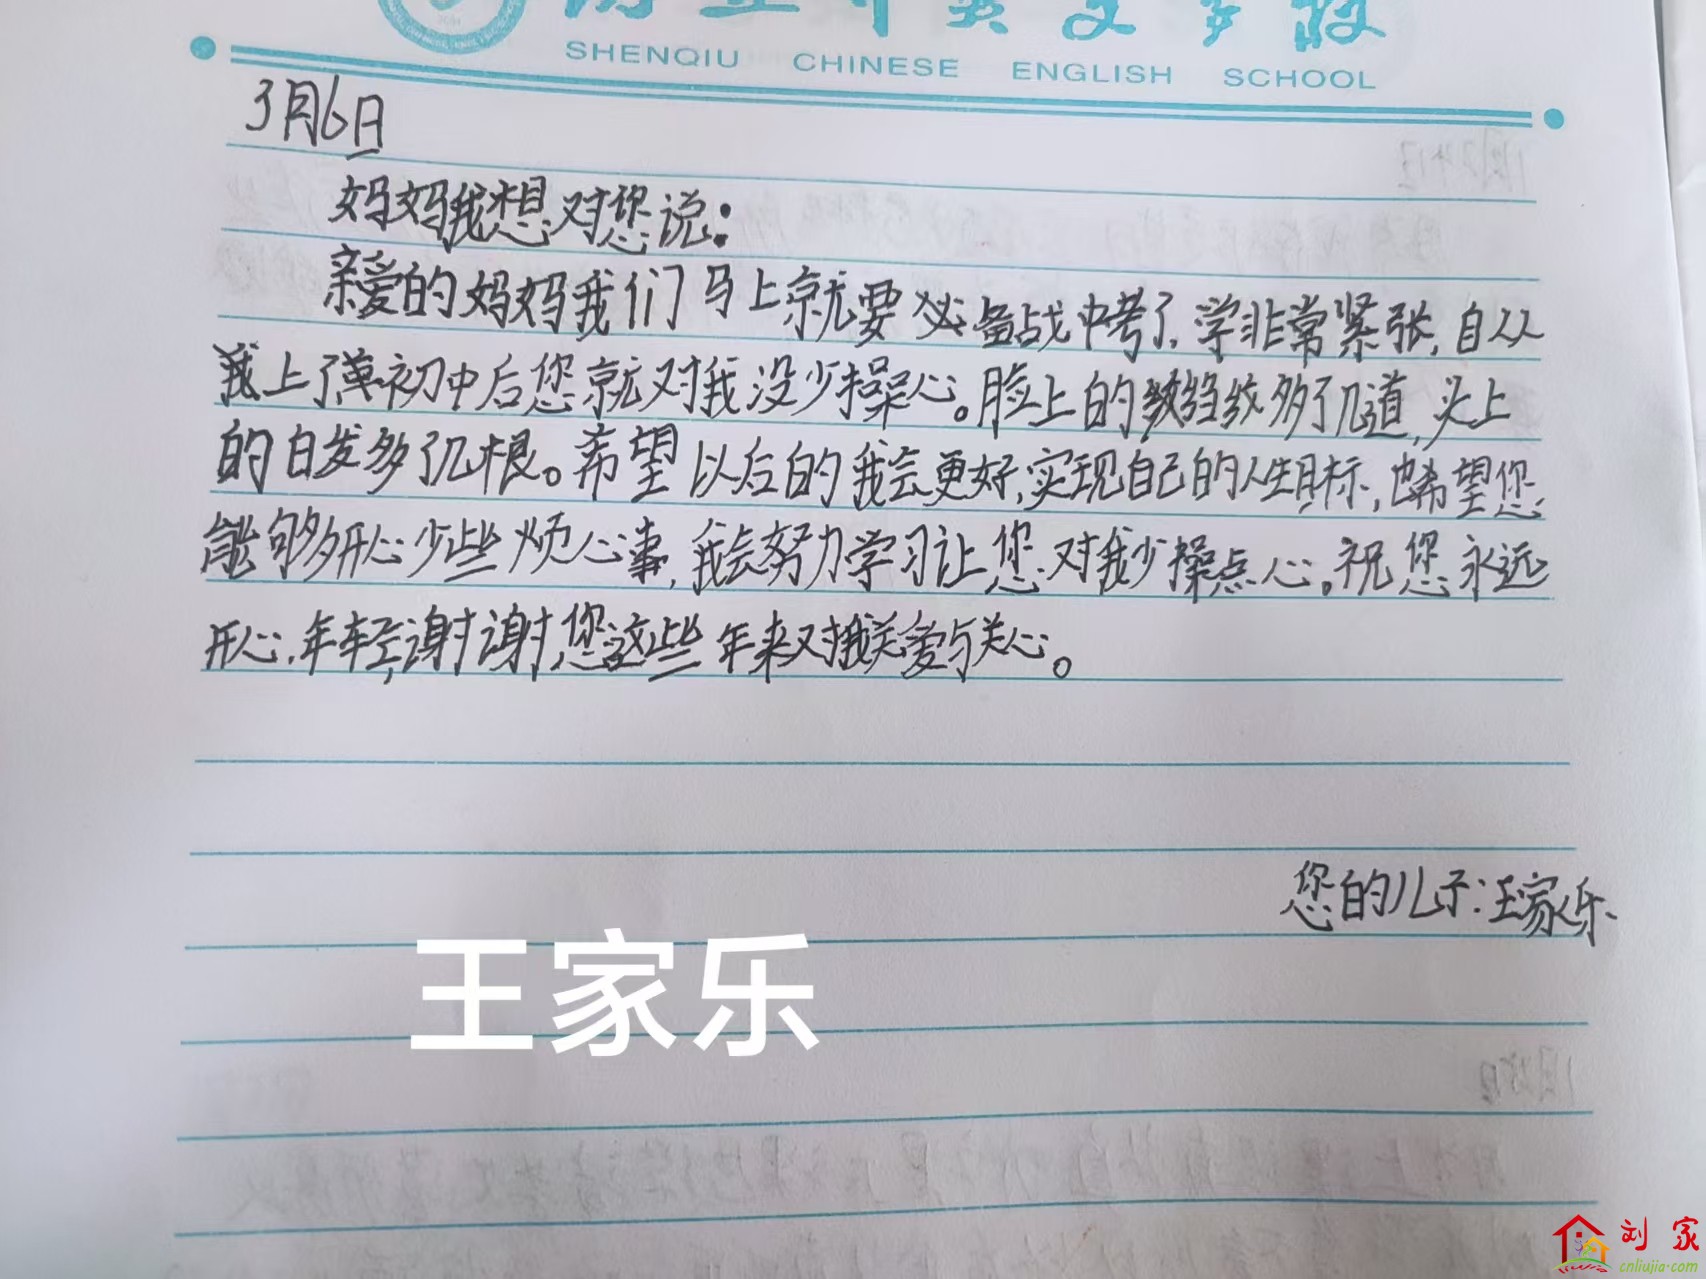 SHENQIU CHINESE ENGLISH SCHOOL
3月6日
妈妈我想对您说：
亲爱的妈妈我们马上就要必备战中考了,学非常紧张,自从
我上了初中后您就对我没少操心。脸上的皱纹多了几道,头上
的白发多了几根。希望以后的我会更好,实现自己的人生目标,也希望您
能够多开心少些烦心事,我会努力学习让您对我少操点心。祝您永远
开心.年轻,谢谢您这些年来对我关爱与关心。
您的儿子:王家乐
王家乐
刘家
cnliujia.com